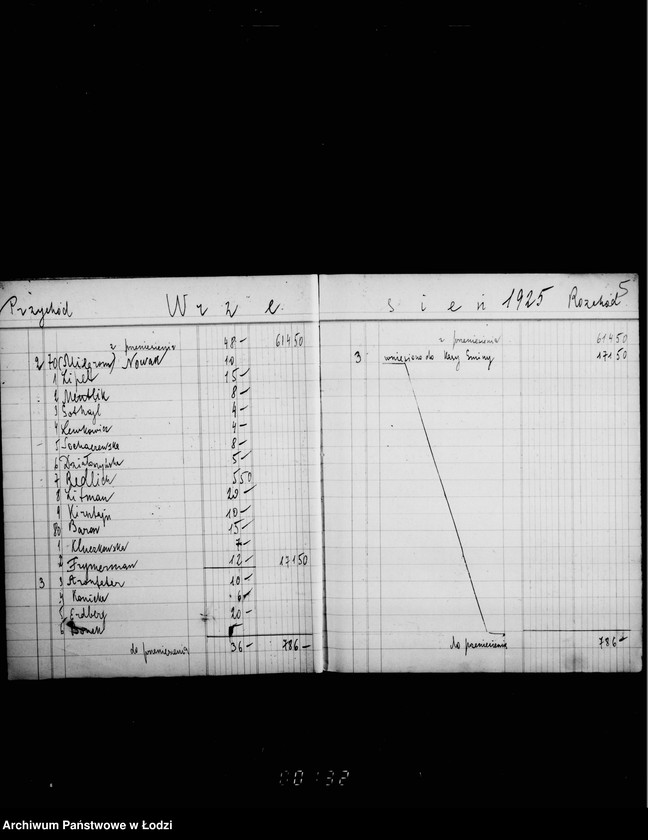 5
Przychód W r z e
z przeniesienia 48 — 614 50
2 70 Nowak 10
1 Lipet 15 —
2 8 —
3 4 —
4 Lewkowicz 4 —
5 Sochaczewska 8 —
6 Działoszyńska 5 —
7 Redlich 5 50
8 Litman 20 —
9 10 —
80 Baron 15 —
1 Kluczkowska 7 —
2 Frymerman 12 — 171 50
3 3 10 —
4 6 —
5 Erdberg 20 —
6
do przeniesienia 36 — 786 —
s i e ń 1925 Rozchód
z przeniesienia 614 50
3 wniesiono do Kasy Gminy 171 50
do przeniesienia 786 —
00132
Archiwum Państwowe w Łodzi